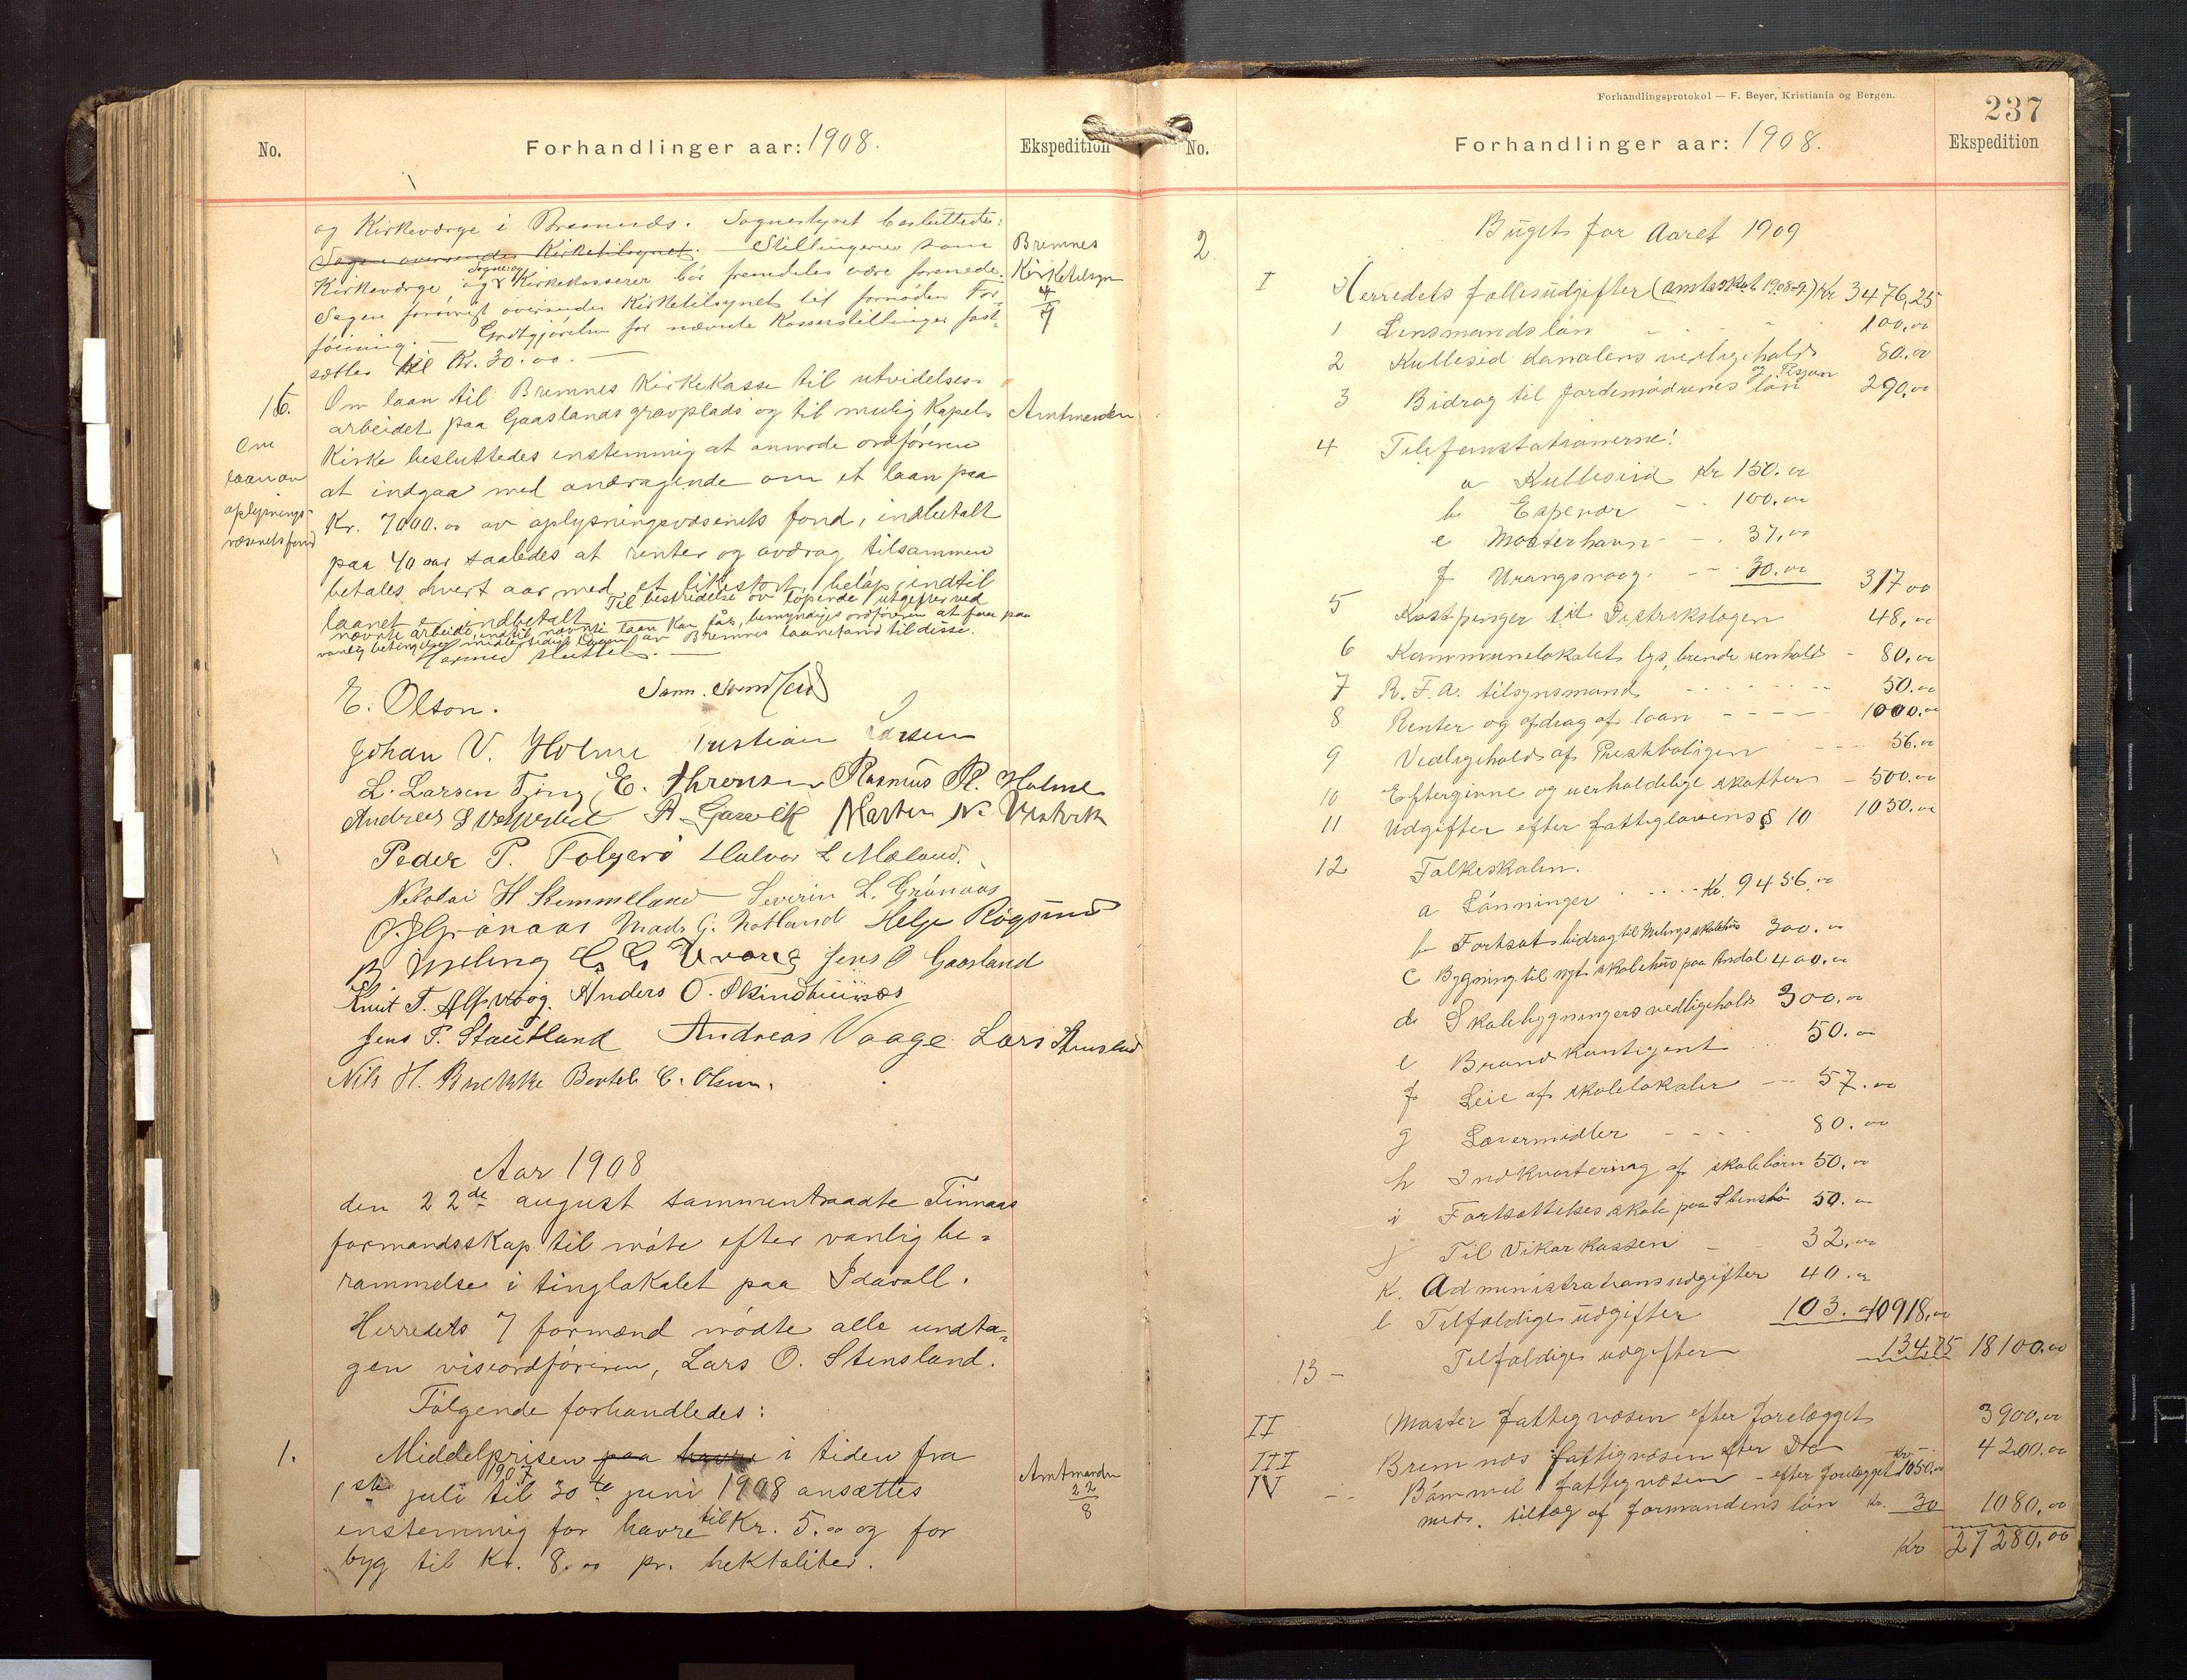 No.
Forhandlinger aar: 1908.
Ekspedition
og Kirkeværge i Bremnæs. Sognestyret besluttede:
Sagen oversendes Kirketilsynet. Stillingerne som
Bremnes
Kirketilsyn
4/9
Sogne og
Kirkeværge og Kirkekasserer bör fremdeles være forenede.
Sagen forövrigt oversendes Kirketilsynet til fornöden For-
föining. — Godtgjörelsen for nævnte Kasserstillinger fast-
sættes til Kr. 30.00. —
16.
Om
laan av
oplysnings-
væsenets fond
Om laan til Bremnes Kirkekasse til utvidelses-
arbeidet paa Gaaslands gravplads og til mulig Kapel-
Amtmanden
Kirke besluttedes enstemmig at anmode ordföreren
at indgaa med andragende om et laan paa
Kr. 7000.00 av oplysningsvæsenets fond, indbetalt
paa 40 aar saaledes at renter og avdrag tilsammen
betales hvert aar med et likestort belöp, indtil
laanet er indbetalt. Til bestridelse av löpende utgifter ved
nævnte arbeide, indtil nævnte laan kan fås, bemyndiges ordföreren at faa paa
vanlig betingelser midlertidigt laan av Bremnes laanefond til disse.
Hermed sluttet. —
E. Olson.
Johan V. Holme Kristian Larsen
L. Larsen Ting E. Thronsen Rasmus R. Holme
A. Gasvik Martin N. Vestvik
Peder P. Folgerö Halvor L Mæland.
Nikolai H Stemmeland Severin L. Grönaas
O. J Grönaas Mads G. Notland Helge Rögsund
B Meling G. G. Urang Jens O Gaasland
Knut T. Alfsvaag. Anders O. Skindhuusæs
Jens P. Stautland Andreas Vaage Lars
Nils H. Brekke Bertel C. Olsen.
Aar 1908
den 22de august sammentraadte Finnaas
formandsskap til möte efter vanlig be-
rammelse i tinglokalet paa Idavoll.
Herredets 7 formænd mödte alle undta-
gen viseordföreren, Lars O. Stensland.
Fölgende forhandledes:
1.
Middelprisen paa havre i tiden fra
1ste juli 1907 til 30te juni 1908 ansættes
Amtmanden
22/8
enstemmig for havre til Kr. 5.00 og for
byg til Kr. 8.00 pr. hektoliter.
Forhandlingsprotokol — F. Beyer, Kristiania og Bergen.
237
No.
Forhandlinger aar: 1908.
Ekspedition
2.
Buget for Aaret 1909
I Herredets fællesudgifter (amtsskat 1908-9) Kr 3476,25
1 Lensmandslön 100,00
2 Kullesid Kanalens vedligehold 80.00
3 Bidrag til Jordemödrenes lön og Pesjon 290,00
4 Telefonstationerne:
a Kulleseid Kr 150.00
b Espevær - 100,00
c Mosterhavn - 37,00
f Urangsvaag. - 30.00 317 00
5 Kostpenger til Distrikslægen 48,00
6 Kommunelokalets lys, brende renhold - 80,00
7 R. F. A. tilsynsmand 50.00
8 Renter og afdrag af laan 1000.00
9 Vedligehold af Prestboligen 56.00
10 Eftergivne og uerholdelige skatter - 500.00
11 Udgifter efter fattiglovens § 10 1050.00
12 Folkeskolen.
a Lönninger Kr. 9456.00
b Fortsat bidrag til Melings skolehus 300.00
c Bygning til nyt skolehus paa Andal 400.00
d Skolebygningers vedligehold 300.00
e Brandkontigent 50.00
f Leie af skolelokaler 57.00
g Lærermidler 80.00
h Indkvartering af skolebörn 50,00
i Fortsættelses skole paa Stensbö 50.00
j Til Vikarkassen 32,00
k. Administrationsudgifter 40.00
l Tilfældige udgifter 103.00 10918,00
13 — Tilfældige udgifter 134,75 18100.00
II Moster fattigvæsen efter forelægget 3900,00
III Bremnæs fattigvæsen efter Do 4200.00
IV — Bömmel fattigvæsen - efter forelægget Kr. 1050.00
med. tillæg af formandens lön Kr. 30 1080,00
Kr 27280,00